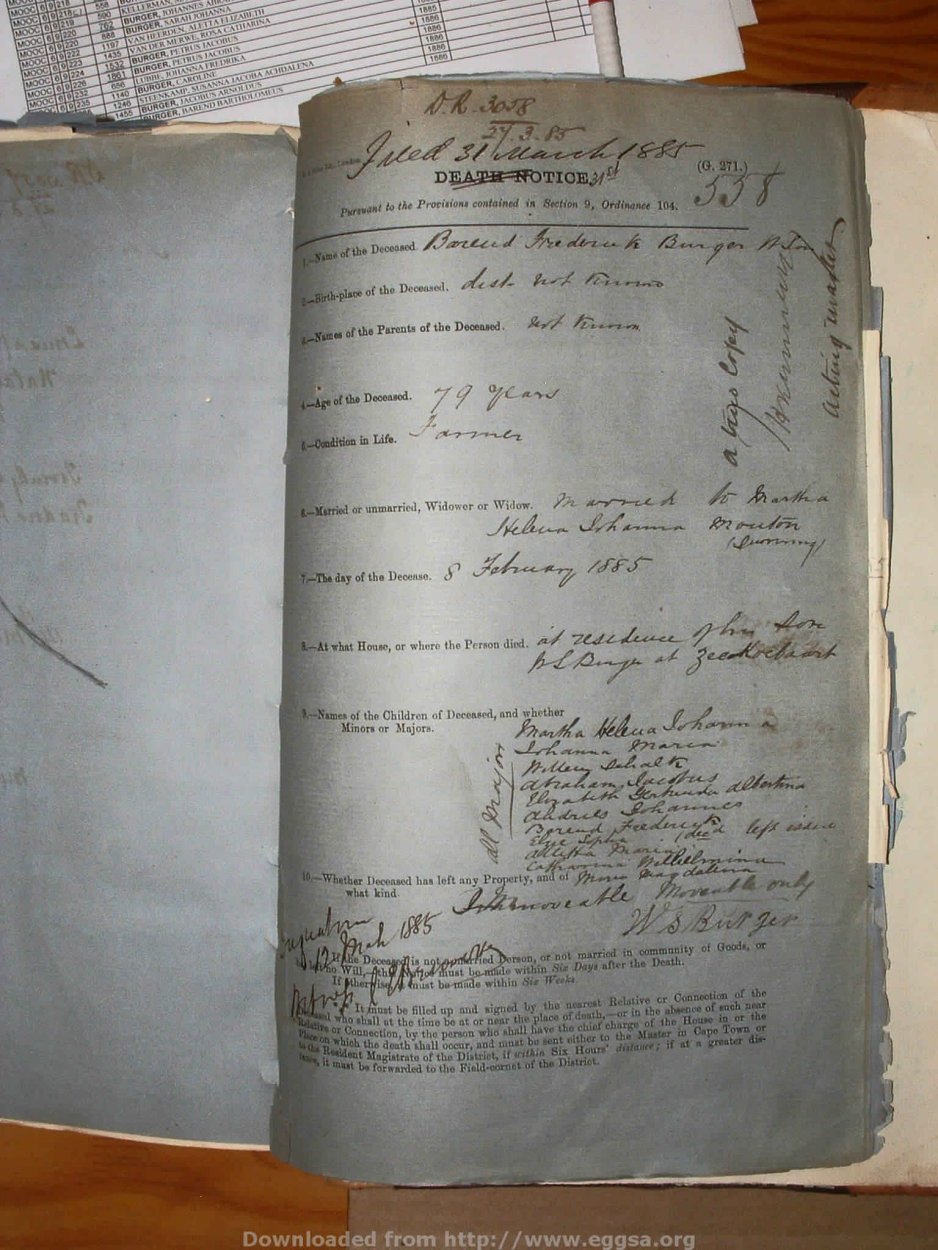 BURGER, JOHANNES
BURGER, SARAH JOHANNA
VAN HEERDEN, ALETTA ELIZABETH
VAN DER MERWE, ROSA CATHARINA
BURGER, PETRUS JACOBUS
BURGER, PETRUS JACOBUS
LUBBE, JOHANNA FREDRIKA
BURGER, CAROLINE
STEENKAMP, SUSANNA JACOBA ACHDALENA
BURGER, JACOBUS ARNOLDUS
BURGER, BAREND BARTHOLOMEUS
D.R. 3058
27.3.85
Filed 31 March 1885
(G. 271.)
DEATH NOTICE, 31st
558
Pursuant to the Provisions contained in Section 9, Ordinance 104.
1.—Name of the Deceased. Barend Frederick Burger
2.—Birth-place of the Deceased. dist. not known
3.—Names of the Parents of the Deceased. not known
4.—Age of the Deceased. 79 years
5.—Condition in Life. Farmer
a true copy
acting master
6.—Married or unmarried, Widower or Widow. Married to Martha
Helena Johanna Mouton
(Surviving)
7.—The day of the Decease. 8 February 1885
8.—At what House, or where the Person died. at residence of his son
W S Burger at Zeekoebaart
9.—Names of the Children of Deceased, and whether
Minors or Majors.
all Majors
Martha Helena Johanna
Johanna Maria
Willem Schalk
Abraham Jacobus
Elizabeth Gertruida Albertina
Andries Johannes
Barend Frederick
Elsie Sophia (dec'd left issue
Aletta Maria
Catharina Wilhelmina
Maria Magdalena
10.—Whether Deceased has left any Property, and of
what kind.
Immoveable Moveable only
W S Burger
12 Mch 1885
If the Deceased is not a married Person, or not married in community of Goods, or
has left no Will, this Notice must be made within Six Days after the Death.
If otherwise, it must be made within Six Weeks.
It must be filled up and signed by the nearest Relative or Connection of the
Deceased who shall at the time be at or near the place of death,—or in the absence of such near
Relative or Connection, by the person who shall have the chief charge of the House in or the
Place on which the death shall occur, and must be sent either to the Master in Cape Town or
to the Resident Magistrate of the District, if within Six Hours' distance; if at a greater dis-
tance, it must be forwarded to the Field-cornet of the District.
Downloaded from http://www.eggsa.org